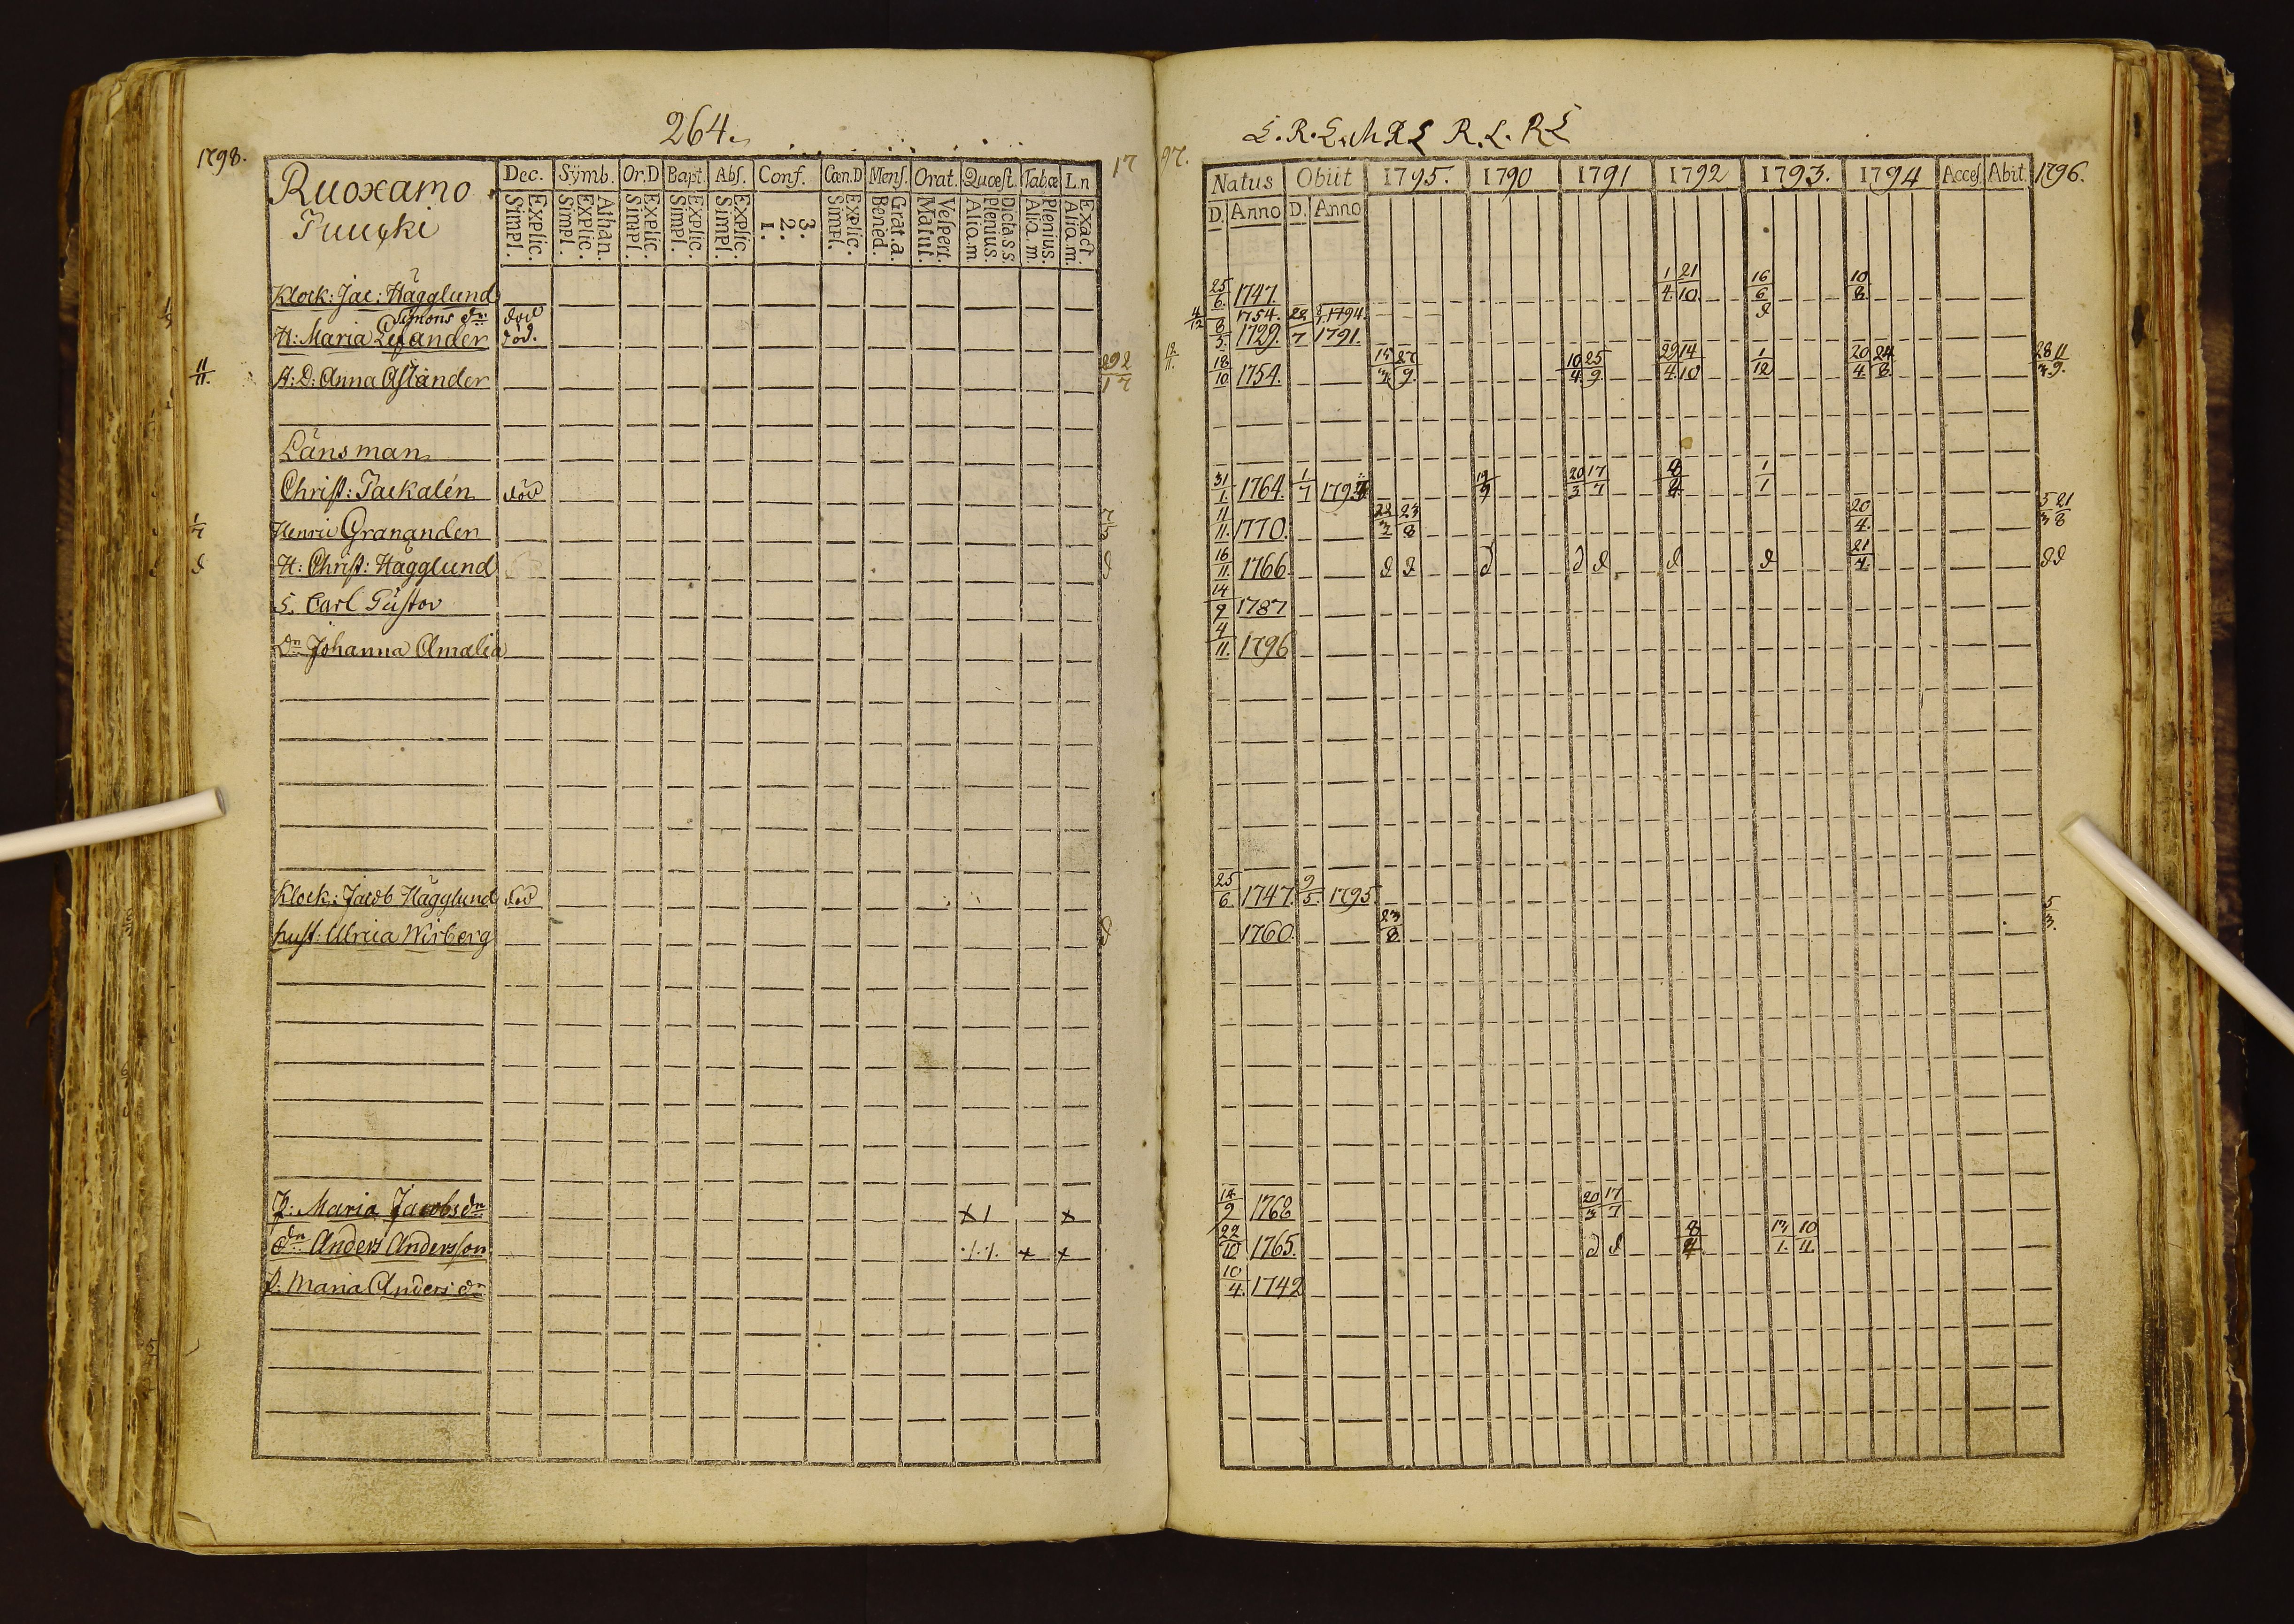 264.
1798.
Ruoxamo
Dec. Symb. Or.D Bapt. Abs. Conf. Cœn.D Mens. Orat. Quæst. Tab.œ L.n
Explic. Simpl. Athan. Explic. Simpl. Explic. Simpl. Explic. Simpl. Explic. Simpl. 3. 2. 1. Explic. Simpl. Grat.a. Bened. Vespert. Matut. Dicta.s.s. Plenius. Aliq.m. Plenius. Aliq.m. Exact. Aliq.m.
Klock: Jac: Hägglund
Simons dr: död
H: Maria död.
11/11. Anna 292
Länsman
Christ: död
1/7 Henric Grananden 7/5
H: Christ: Hägglund
S. Carl Gustav
Dr Johanna Amalia
Klock: Jacob Hägglund död
hust: Ulrica Wirberg
P: Maria Jacobsdr x 1 x
dn Anders Andersson x x
P: Maria Andersdr
17 97.
Natus Obiit 1795. 1790 1791 1792 1793. 1794 Acces. Abit. 1796.
D. Anno D. Anno
25/6. 1747. 1/4. 21/10. 16/6 10/8.
4/12 1754. 1794.
8/3. 1729. 1791.
18/10 1754. 27/9. 10/4. 25/9. 29/4. 14/10 1/12 20/4. 24/8.
31/1. 1764. 1/7 20/3 17/7 1/1
11/11. 1770. 23/8 20/4. 5/3 21/8
16/11. 1766 d d d d d d d 21/4. dd
14/9 1787
4/11. 1796
25/6. 1747. 9/5. 1795
1760. 23/8. 5/3.
14/9 1768 20/3 17/7
22/10 1765. d d 10/11.
10/4. 1742